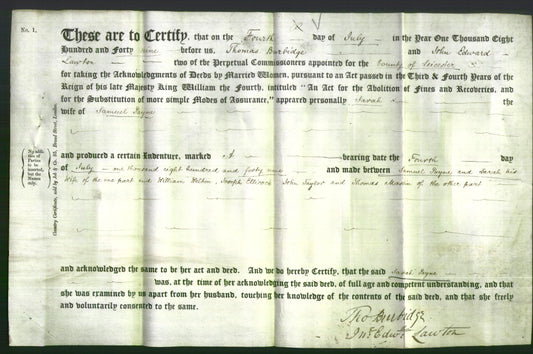 No. 1.
These are to Certify, that on the Fourth day of July in the Year One Thousand Eight
Hundred and Forty nine before us, Thomas Burbidge and John Edward
Lawton two of the Perpetual Commissioners appointed for the County of Leicester
for taking the Acknowledgments of Deeds by Married Women, pursuant to an Act passed in the Third & Fourth Years of the
Reign of his late Majesty King William the Fourth, intituled "An Act for the Abolition of Fines and Recoveries, and
for the Substitution of more simple Modes of Assurance," appeared personally Sarah the
wife of Samuel Payne
No addition of Parties to be inserted, but the Names only.
Country Certificate, sold by
and produced a certain Indenture, marked A bearing date the Fourth day
of July one thousand eight hundred and forty nine and made between Samuel Payne and Sarah his
wife of the one part and William Joseph John Taylor and Thomas of the other part
and acknowledged the same to be her act and deed. And we do hereby Certify, that the said Sarah Payne
was, at the time of her acknowledging the said deed, of full age and competent understanding, and that
she was examined by us apart from her husband, touching her knowledge of the contents of the said deed, and that she freely
and voluntarily consented to the same.
Tho Burbidge
Jno Edwd Lawton